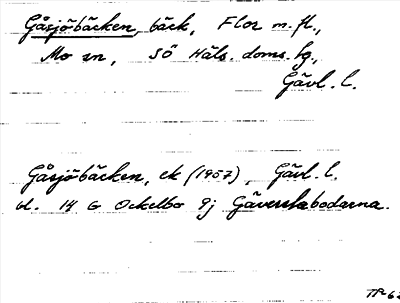 Gåsjöbäcken, bäck, Flor m.fl.,
Mo sn, SÖ Häls. doms. fg.,
Gävl. l.
Gåsjöbäcken, ek (1957), Gävl. l.
bl. 14 G Ockelbo 9j Gäverstabodarna.